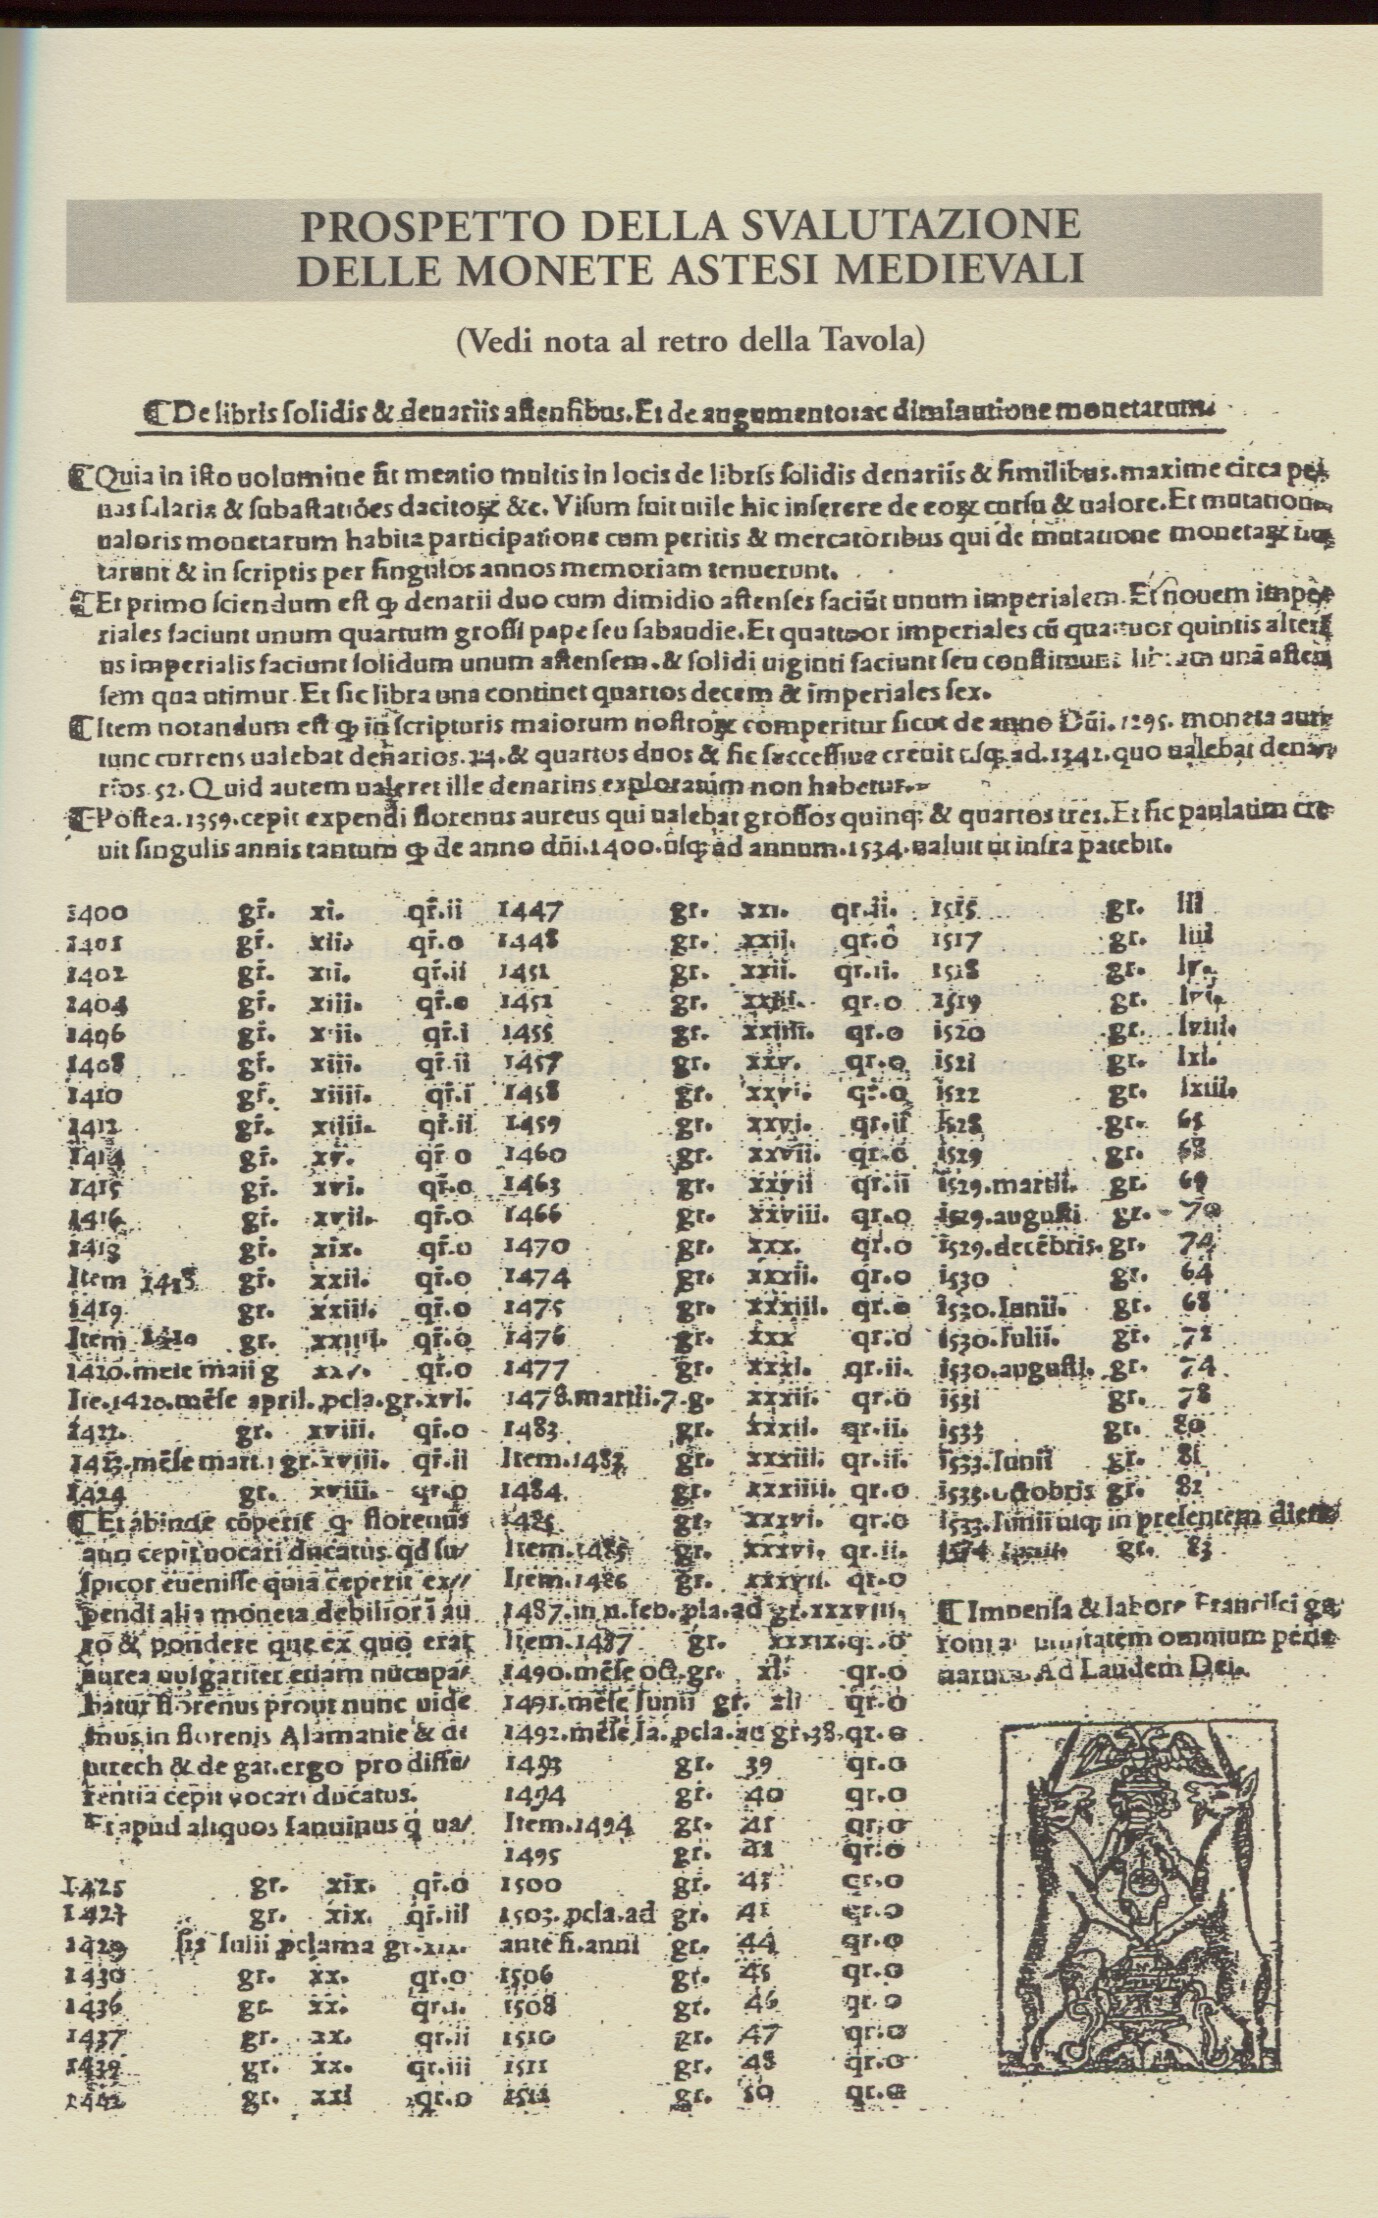 PROSPETTO DELLA SVALUTAZIONE
DELLE MONETE ASTESI MEDIEVALI
(Vedi nota al retro della Tavola)
De libris solidis & denariis astensibus. Et de augumento: ac diminutione monetarum.
Quia in isto uolumine fit mentio multis in locis de libris solidis denariis & similibus. maxime circa
nas salaria & subastatiões dacitoꝝ &c. Visum fuit utile hic inserere de eoꝝ cursu & ualore. Et mutatione
ualoris monetarum habita participatione cum peritis & mercatoribus qui de mutatione monetaꝝ
tarunt & in scriptis per singulos annos memoriam tenuerunt.
Et primo sciendum est ꝙ denarii duo cum dimidio astenses faciūt unum imperialem. Et nouem impe
riales faciunt unum quartum grossi pape seu sabaudie. Et quattuor imperiales cū quattuor quintis alteri
us imperialis faciunt solidum unum astensem. & solidi uiginti faciunt seu constituunt libram unā asten
sem qua utimur. Et sic libra una continet quartos decem & imperiales sex.
Item notandum est ꝙ in scripturis maiorum nostroꝝ comperitur sicut de anno Dñi. 1295. moneta auri
tunc currens ualebat denarios. 24. & quartos duos & sic successiue creuit usqꝫ ad. 1342. quo ualebat dena
rios 52. Quid autem ualeret ille denarius exploratum non habetur.
Postea. 1359. cepit expendi florenus aureus qui ualebat grossos quinqꝫ & quartos tres. Et sic paulatim cre
uit singulis annis tantum ꝙ de anno dñi. 1400. usqꝫ ad annum. 1534. ualuit ut infra patebit.
1400 gr̄. xi. qr̄.ii
1401 gr̄. xii. qr̄.o
1402 gr̄. xii. qr̄.ii
1404 gr̄. xiii. qr̄.o
1406 gr̄. xiii. qr̄.i
1408 gr̄. xiii. qr̄.ii
1410 gr̄. xiiii. qr̄.i
1412 gr̄. xiiii. qr̄.ii
1414 gr̄. xv. qr̄.o
1415 gr̄. xvi. qr̄.o
1416 gr̄. xvii. qr̄.o
gr̄. xix. qr̄.o
Item 1418 gr̄. xxii. qr̄.o
1419 gr. xxiii. qr̄.o
Item gr. xxiiii. qr̄.o
1420. mēse maii g qr̄.o
Ite. 1420. mēse april. pcla. gr. xvi.
1422. gr. xviii. qr̄.o
mēse mart. gr. xviii. qr̄.ii
1424 gr. xviii. qr.o
Et abinde cōperit ꝙ florenus
auri cepit uocari ducatus. qd su/
spicor euenisse quia ceperit ex//
pendi alia moneta debilior ī au
ro & pondere que ex quo erat
aurea uulgariter etiam nūcupa/
batur florenus prout nunc uide
mus in florenis Alamanie & de
utrech & de gat. ergo pro diffe/
rentia cepit vocari ducatus.
Et apud aliquos Ianuinus q ua/
1425 gr. xix. qr̄.o
1427 gr. xix. qr̄.iii
1429 Iulii pclama gr. xix.
1430 gr. xx. qr.o
1436 gr. xx. qr.i.
1437 gr. xx. qr.ii
1439 gr. xx. qr.iii
1442 gr. xxi qr.o
1447 gr. xxi. qr.ii.
1448 gr. xxii. qr.o
1451 gr. xxii. qr.ii.
1452 gr. xxiii. qr.o
1455 gr. xxiiii. qr.o
1457 gr. xxv. qr.o
1458 gr. xxvi. qr.o
1459 gr. xxvi. qr.ii
1460 gr. xxvii. qr.o
1463 gr. xxvii qr.ii
1466 gr. xxviii. qr.o
1470 gr. xxx. qr.o
1474 gr. xxxii. qr.o
1475 gr. xxxiii. qr.o
1476 gr. xxx qr.o
1477 gr. xxxi. qr.ii.
1478. martii. 7. g. xxxii. qr.o
1483 gr. xxxii. qr.ii.
Item. 1483 gr. xxxiii. qr.ii.
1484 gr. xxxiiii. qr.o
1485 gr. xxxvi. qr.o
Item. 1485 gr. xxxvi. qr.ii.
Item. 1486 gr. xxxvii. qr.o
1487. in feb. pla. ad gr. xxxviii.
Item. 1487 gr. xxxix. qr.o
1490. mēse oct. gr. xl. qr.o
1491. mēse Iunii gr. xli qr.o
1492. mēse Ia. pcla. ad gr. 38. qr.o
1493 gr. 39 qr.o
1494 gr. 40 qr.o
Item. 1494 gr. 41 qr.o
1495 gr. 42 qr.o
1500 gr. 43 qr.o
1503. pcla. ad gr. 41 qr.o
ante fi. anni gr. 44 qr.o
1506 gr. 45 qr.o
1508 gr. 46 qr.o
1510 gr. 47 qr.o
1511 gr. 48 qr.o
1512 gr. 50 qr.o
1515 gr. liii
1517 gr. liiii
1518 gr. lv.
1519 gr. lvi.
1520 gr. lviii.
1521 gr. lxi.
1522 gr. lxiii.
1528 gr. 65
1529 gr. 68
1529. martii. gr. 69
1529. augusti gr. 70
1529. decēbris. gr. 74
1530 gr. 64
1530. Ianii. gr. 68
1530. Iulii. gr. 72
1530. augusti. gr. 74
1531 gr. 78
1533 gr. 80
1533. Iunii gr. 81
1533. octobris gr. 82
1533. Iunii usqꝫ in presentem diem
gr. 83
Impensa & labore Francisci ga
roni utilitatem omnium
Ad Laudem Dei.